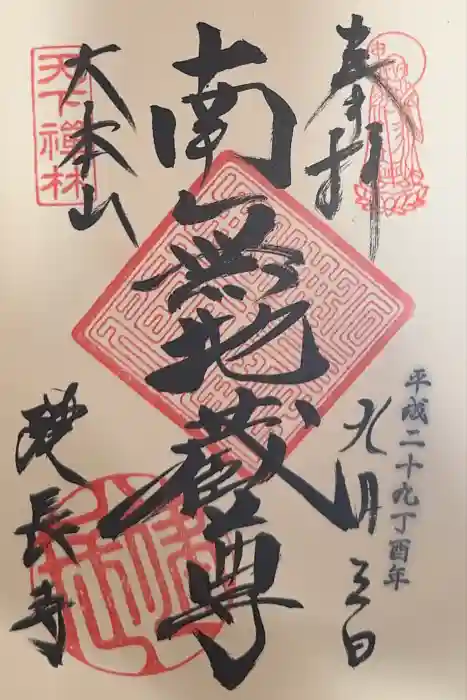 奉拝
平成二十九丁酉年
九月三日
南無地蔵尊
大本山
建長寺
天下禅林